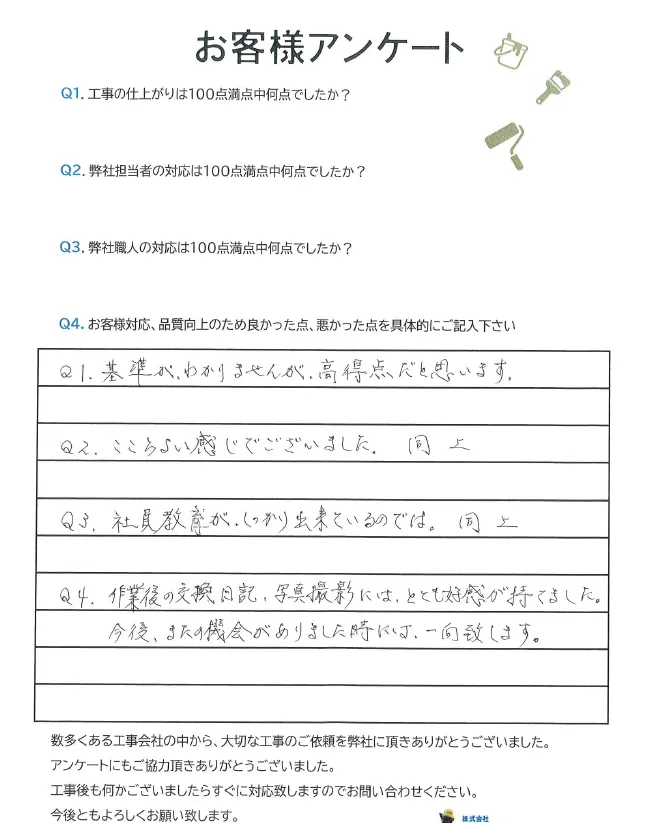 お客様アンケート
Q1. 工事の仕上がりは100点満点中何点でしたか？
Q2. 弊社担当者の対応は100点満点中何点でしたか？
Q3. 弊社職人の対応は100点満点中何点でしたか？
Q4. お客様対応、品質向上のため良かった点、悪かった点を具体的にご記入下さい
Q1. 基準が、わかりませんが、高得点だと思います。
Q2. こころよい感じでございました。 同上
Q3. 社員教育が、しっかり出来ているのでは。 同上
Q4. 作業後の交換日記、写真撮影には、とても好感が持てました。
今後、またの機会がありました時には、一向致します。
数多くある工事会社の中から、大切な工事のご依頼を弊社に頂きありがとうございました。
アンケートにもご協力頂きありがとうございました。
工事後も何かございましたらすぐに対応致しますのでお問い合わせください。
今後ともよろしくお願い致します。
株式会社